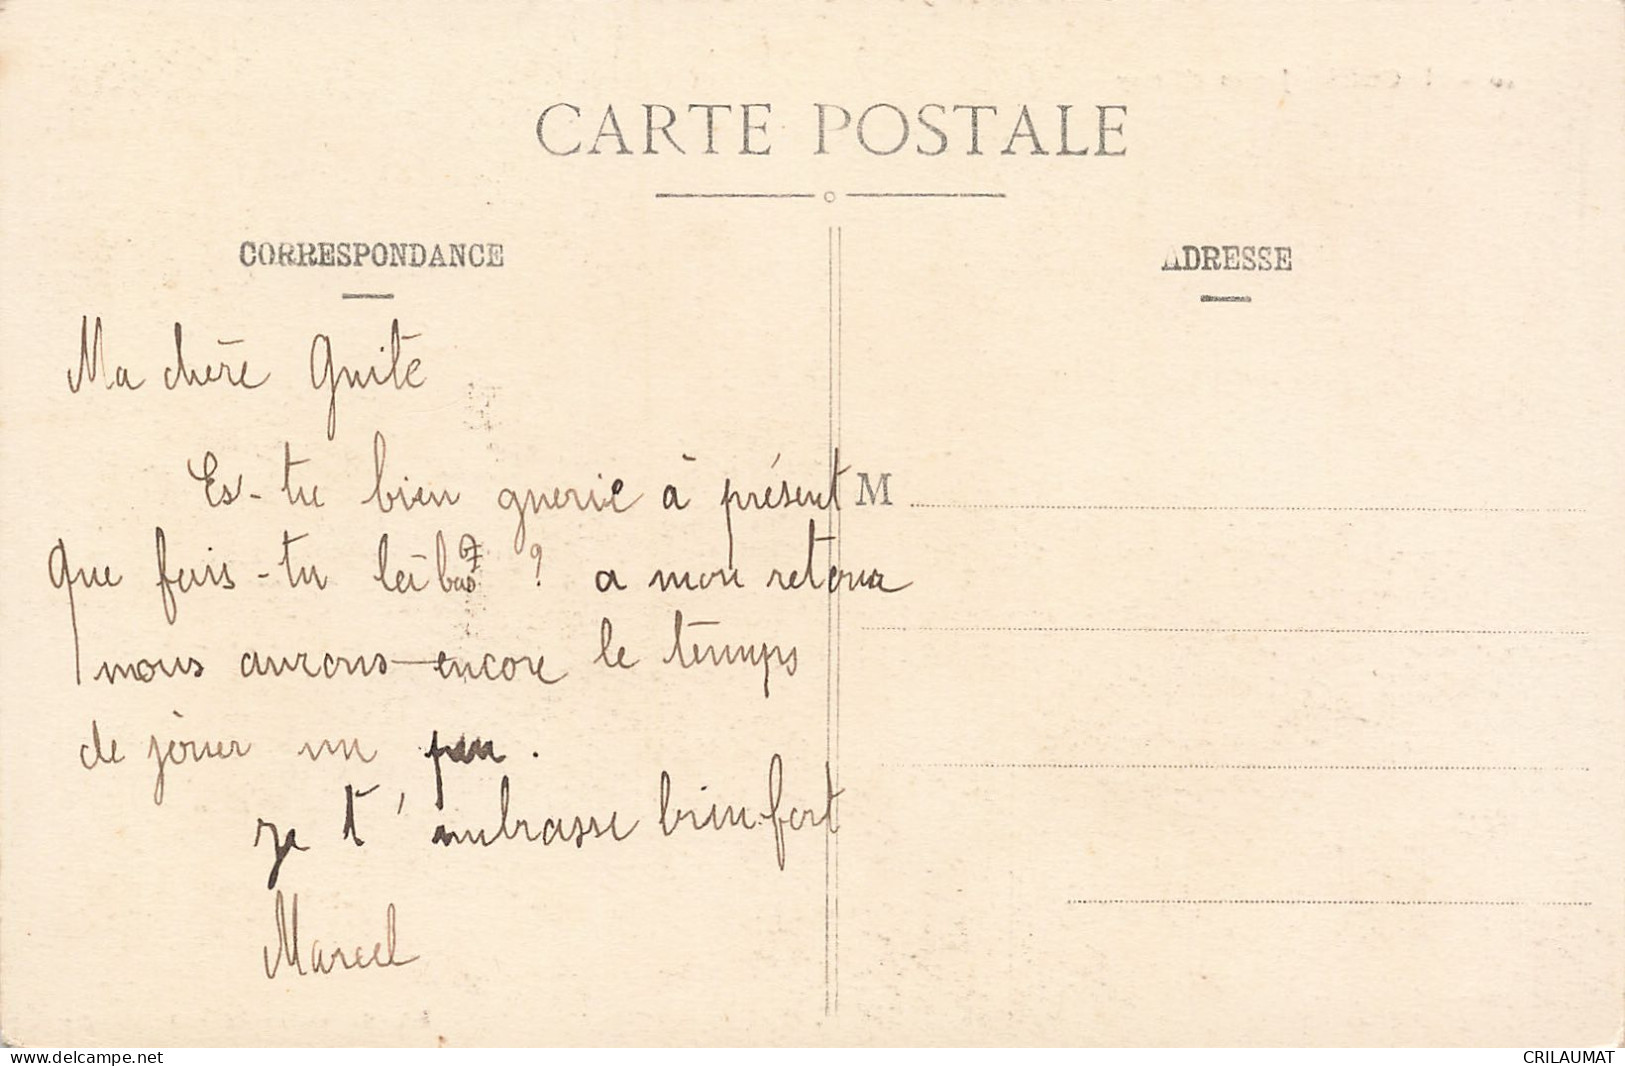 CARTE POSTALE
CORRESPONDANCE
ADRESSE
Ma chère Guite
Es-tu bien guerie à présent
M
que fais-tu là bas ? a mon retour
nous aurons encore le temps
de jouer un peu.
je t'embrasse bien fort
Marcel
www.delcampe.net
CRILAUMAT